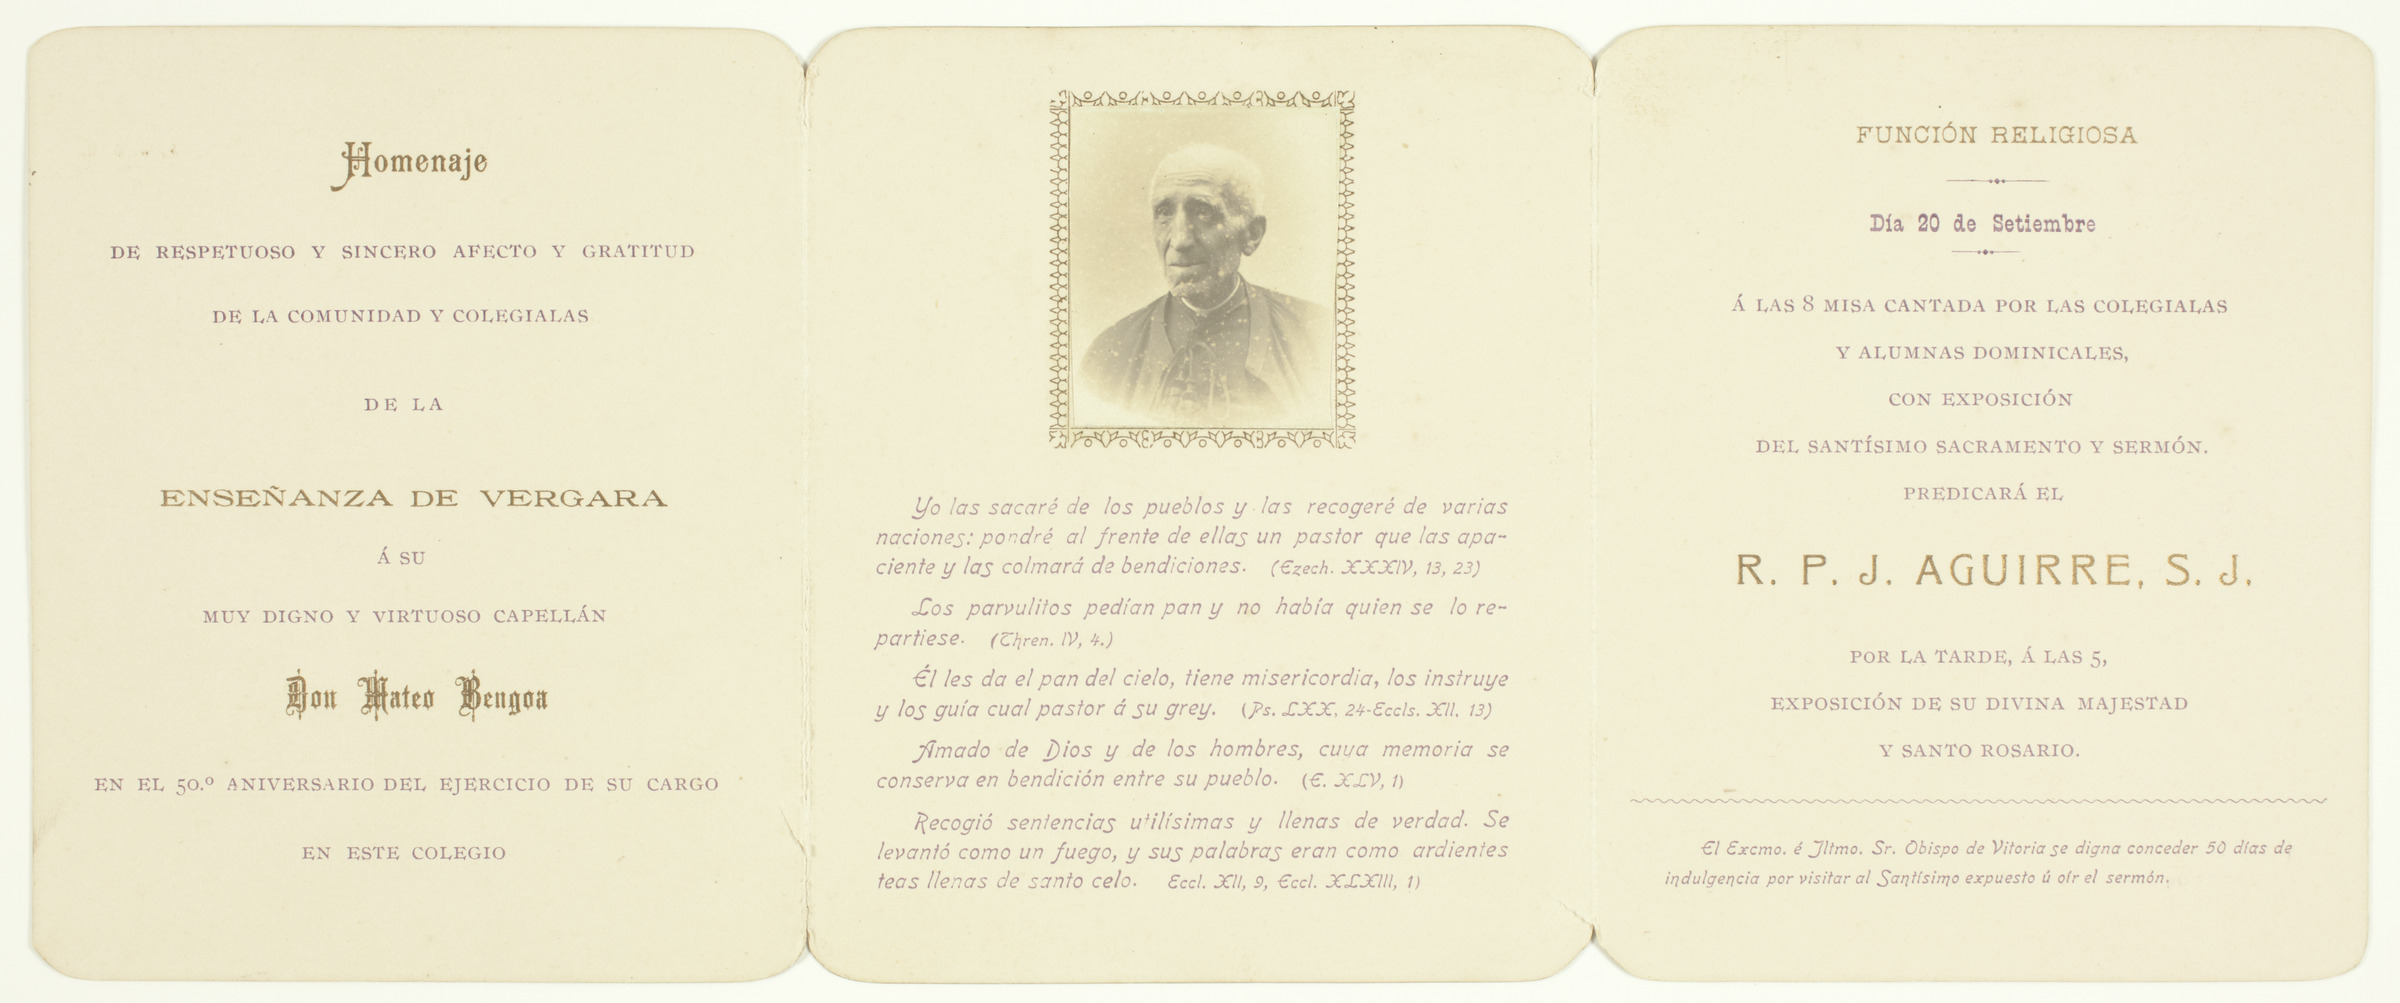 Homenaje
DE RESPETUOSO Y SINCERO AFECTO Y GRATITUD
DE LA COMUNIDAD Y COLEGIALAS
DE LA
ENSEÑANZA DE VERGARA
Á SU
MUY DIGNO Y VIRTUOSO CAPELLÁN
Don Mateo Bengoa
EN EL 50.º ANIVERSARIO DEL EJERCICIO DE SU CARGO
EN ESTE COLEGIO
Yo las sacaré de los pueblos y las recogeré de varias
naciones: pondré al frente de ellas un pastor que las apa-
ciente y las colmará de bendiciones. (Ezech. XXXIV, 13, 23)
Los parvulitos pedían pan y no había quien se lo re-
partiese. (Thren. IV, 4.)
Él les da el pan del cielo, tiene misericordia, los instruye
y los guía cual pastor á su grey. (Ps. LXX, 24-Eccls. XII, 13)
Amado de Dios y de los hombres, cuya memoria se
conserva en bendición entre su pueblo. (E. XLV, 1)
Recogió sentencias utilísimas y llenas de verdad. Se
levantó como un fuego, y sus palabras eran como ardientes
teas llenas de santo celo. Eccl. XII, 9, Eccl. XLXIII, 1)
FUNCIÓN RELIGIOSA
Día 20 de Setiembre
Á LAS 8 MISA CANTADA POR LAS COLEGIALAS
Y ALUMNAS DOMINICALES,
CON EXPOSICIÓN
DEL SANTÍSIMO SACRAMENTO Y SERMÓN.
PREDICARÁ EL
R. P. J. AGUIRRE, S. J.
POR LA TARDE, Á LAS 5,
EXPOSICIÓN DE SU DIVINA MAJESTAD
Y SANTO ROSARIO.
El Excmo. é Iltmo. Sr. Obispo de Vitoria se digna conceder 50 días de
indulgencia por visitar al Santísimo expuesto ú oír el sermón.